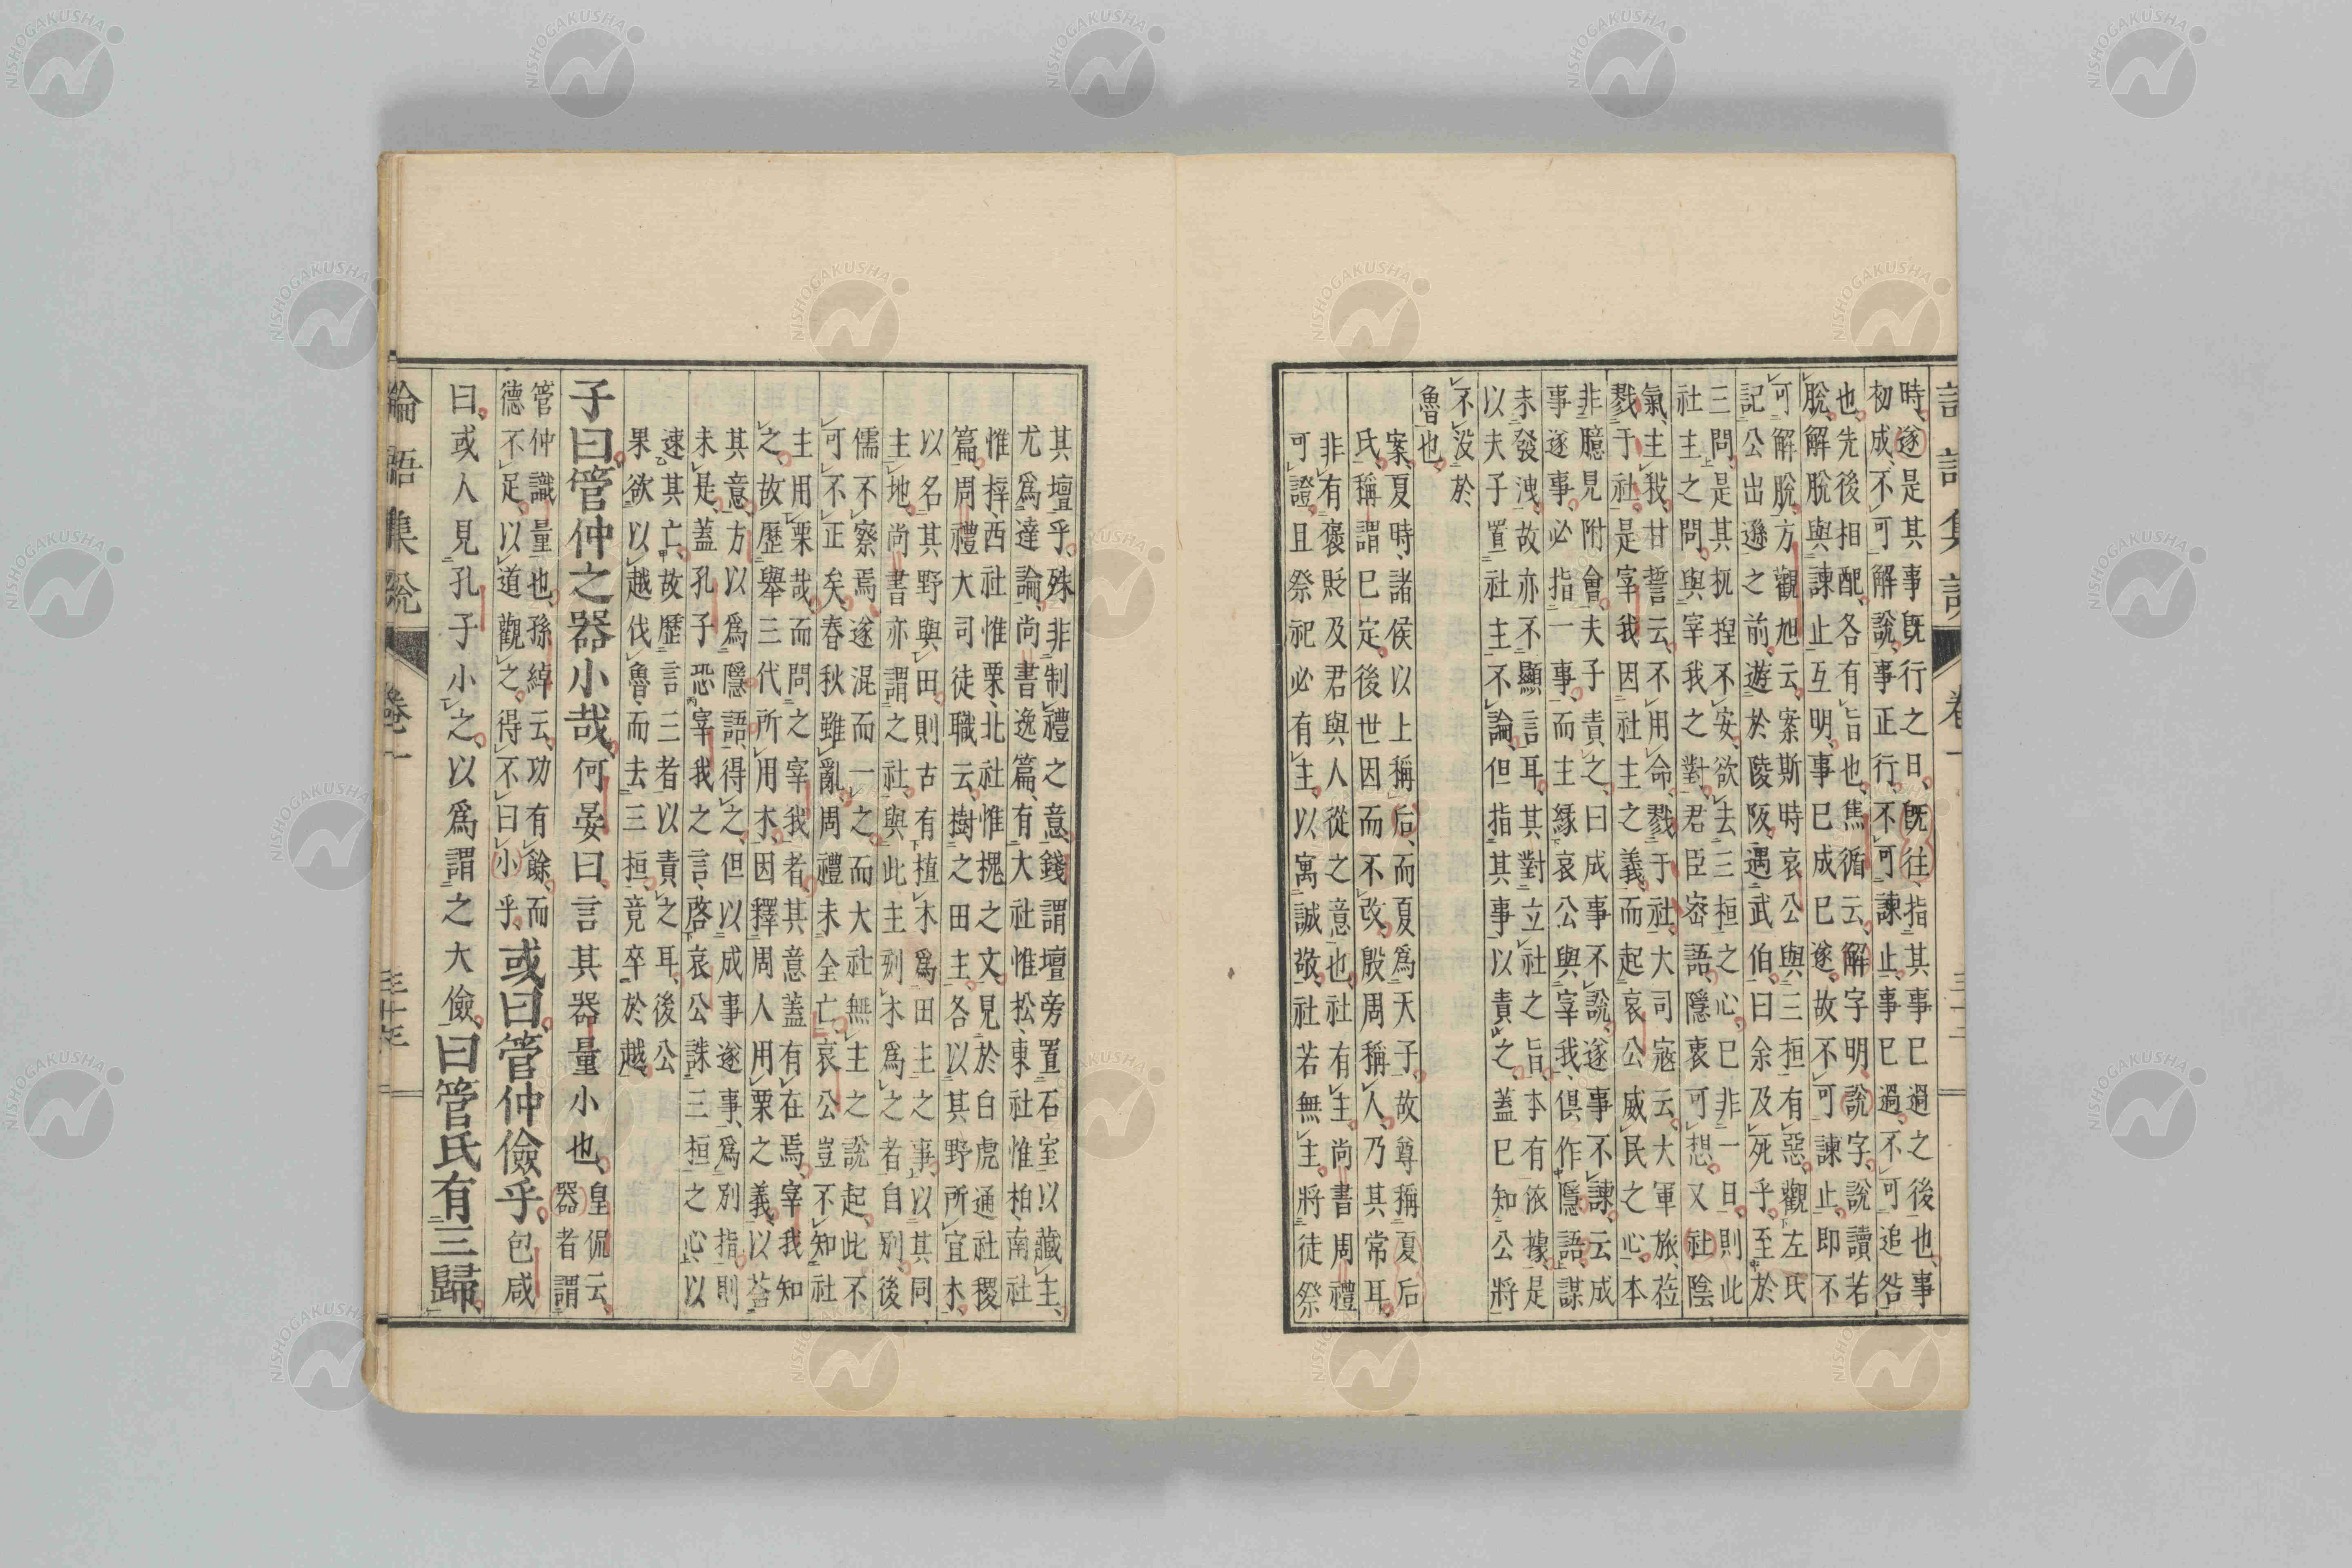 論語集說 卷一
時、遂是其事既行之日、既往、指其事已過之後也、事
初成、不可解說、事正行、不可諫止、事已過、不可追咎
也、先後相配、各有旨也、焦循云、解字明說字、說讀若
脫、解脫與諫止互明、事已成已遂、故不可諫止、即不
可解脫、方觀旭云、案斯時哀公與三桓有惡、觀左氏
記公出遜之前、遊於陵阪、遇武伯、曰余及死乎、至於
三問、是其杌揑不安、欲去三桓之心、已非一日、則此
社主之問、與宰我之對、君臣密語、隱衷可想、又社陰
氣、主戮、甘誓云、不用命、戮于社、大司寇云、大軍旅、莅
戮于社、是宰我因社主之義、而起哀公威民之心、本
非臆見附會、夫子責之、曰成事不說、遂事不諫、云成
事遂事、必指一事、而主緣哀公與宰我、俱作隱語、謀
未發洩、故亦不顯言耳、其對立社之旨、本有依據、是
以夫子置社主不論、但指其事以責之、蓋已知公將
不没於
魯也、
案、夏時、諸侯以上稱后、而夏爲天子、故尊稱夏后
氏、稱謂已定、後世因而不改、殷周稱人、乃其常耳、
非有褒貶及君與人從之意也、社有主、尚書周禮
可證、且祭祀必有主、以寓誠敬、社若無主、將徒祭
其壇乎、殊非制禮之意、錢謂壇旁置石室以藏主、
尤爲達論、尚書逸篇有大社惟松、東社惟柏、南社
惟梓、西社惟栗、北社惟槐之文、見於白虎通社稷
篇、周禮大司徒職云、樹之田主、各以其野所宜木、
以名其野與田、則古有植木爲田主之事、以其同
主地、尚書亦謂之社、與此主刿木爲之者自別、後
儒不察焉、遂混而一之、而大社無主之說起、此不
可不正矣、春秋雖亂、周禮未全亡、哀公豈不知社
主用栗哉、而問之宰我者、其意蓋有在焉、宰我知
之、故歷舉三代所用木、因釋周人用栗之義、以荅
其意、方以爲隱語得之、但以成事遂事、爲別指、則
未是、蓋孔子恐宰我之言、啓哀公誅三桓之心、以
速其亡、故歷言三者以責之耳、後公
果欲以越伐魯、而去三桓、竟卒於越、
子曰、管仲之器小哉、何晏曰、言其器量小也、皇侃云、
器者謂
管仲識量也、孫綽云、功有餘、而
德不足、以道觀之、得不曰小乎、或曰、管仲儉乎、包咸
曰、或人見孔子小之、以爲謂之大儉、曰、管氏有三歸、
論語集說 卷一